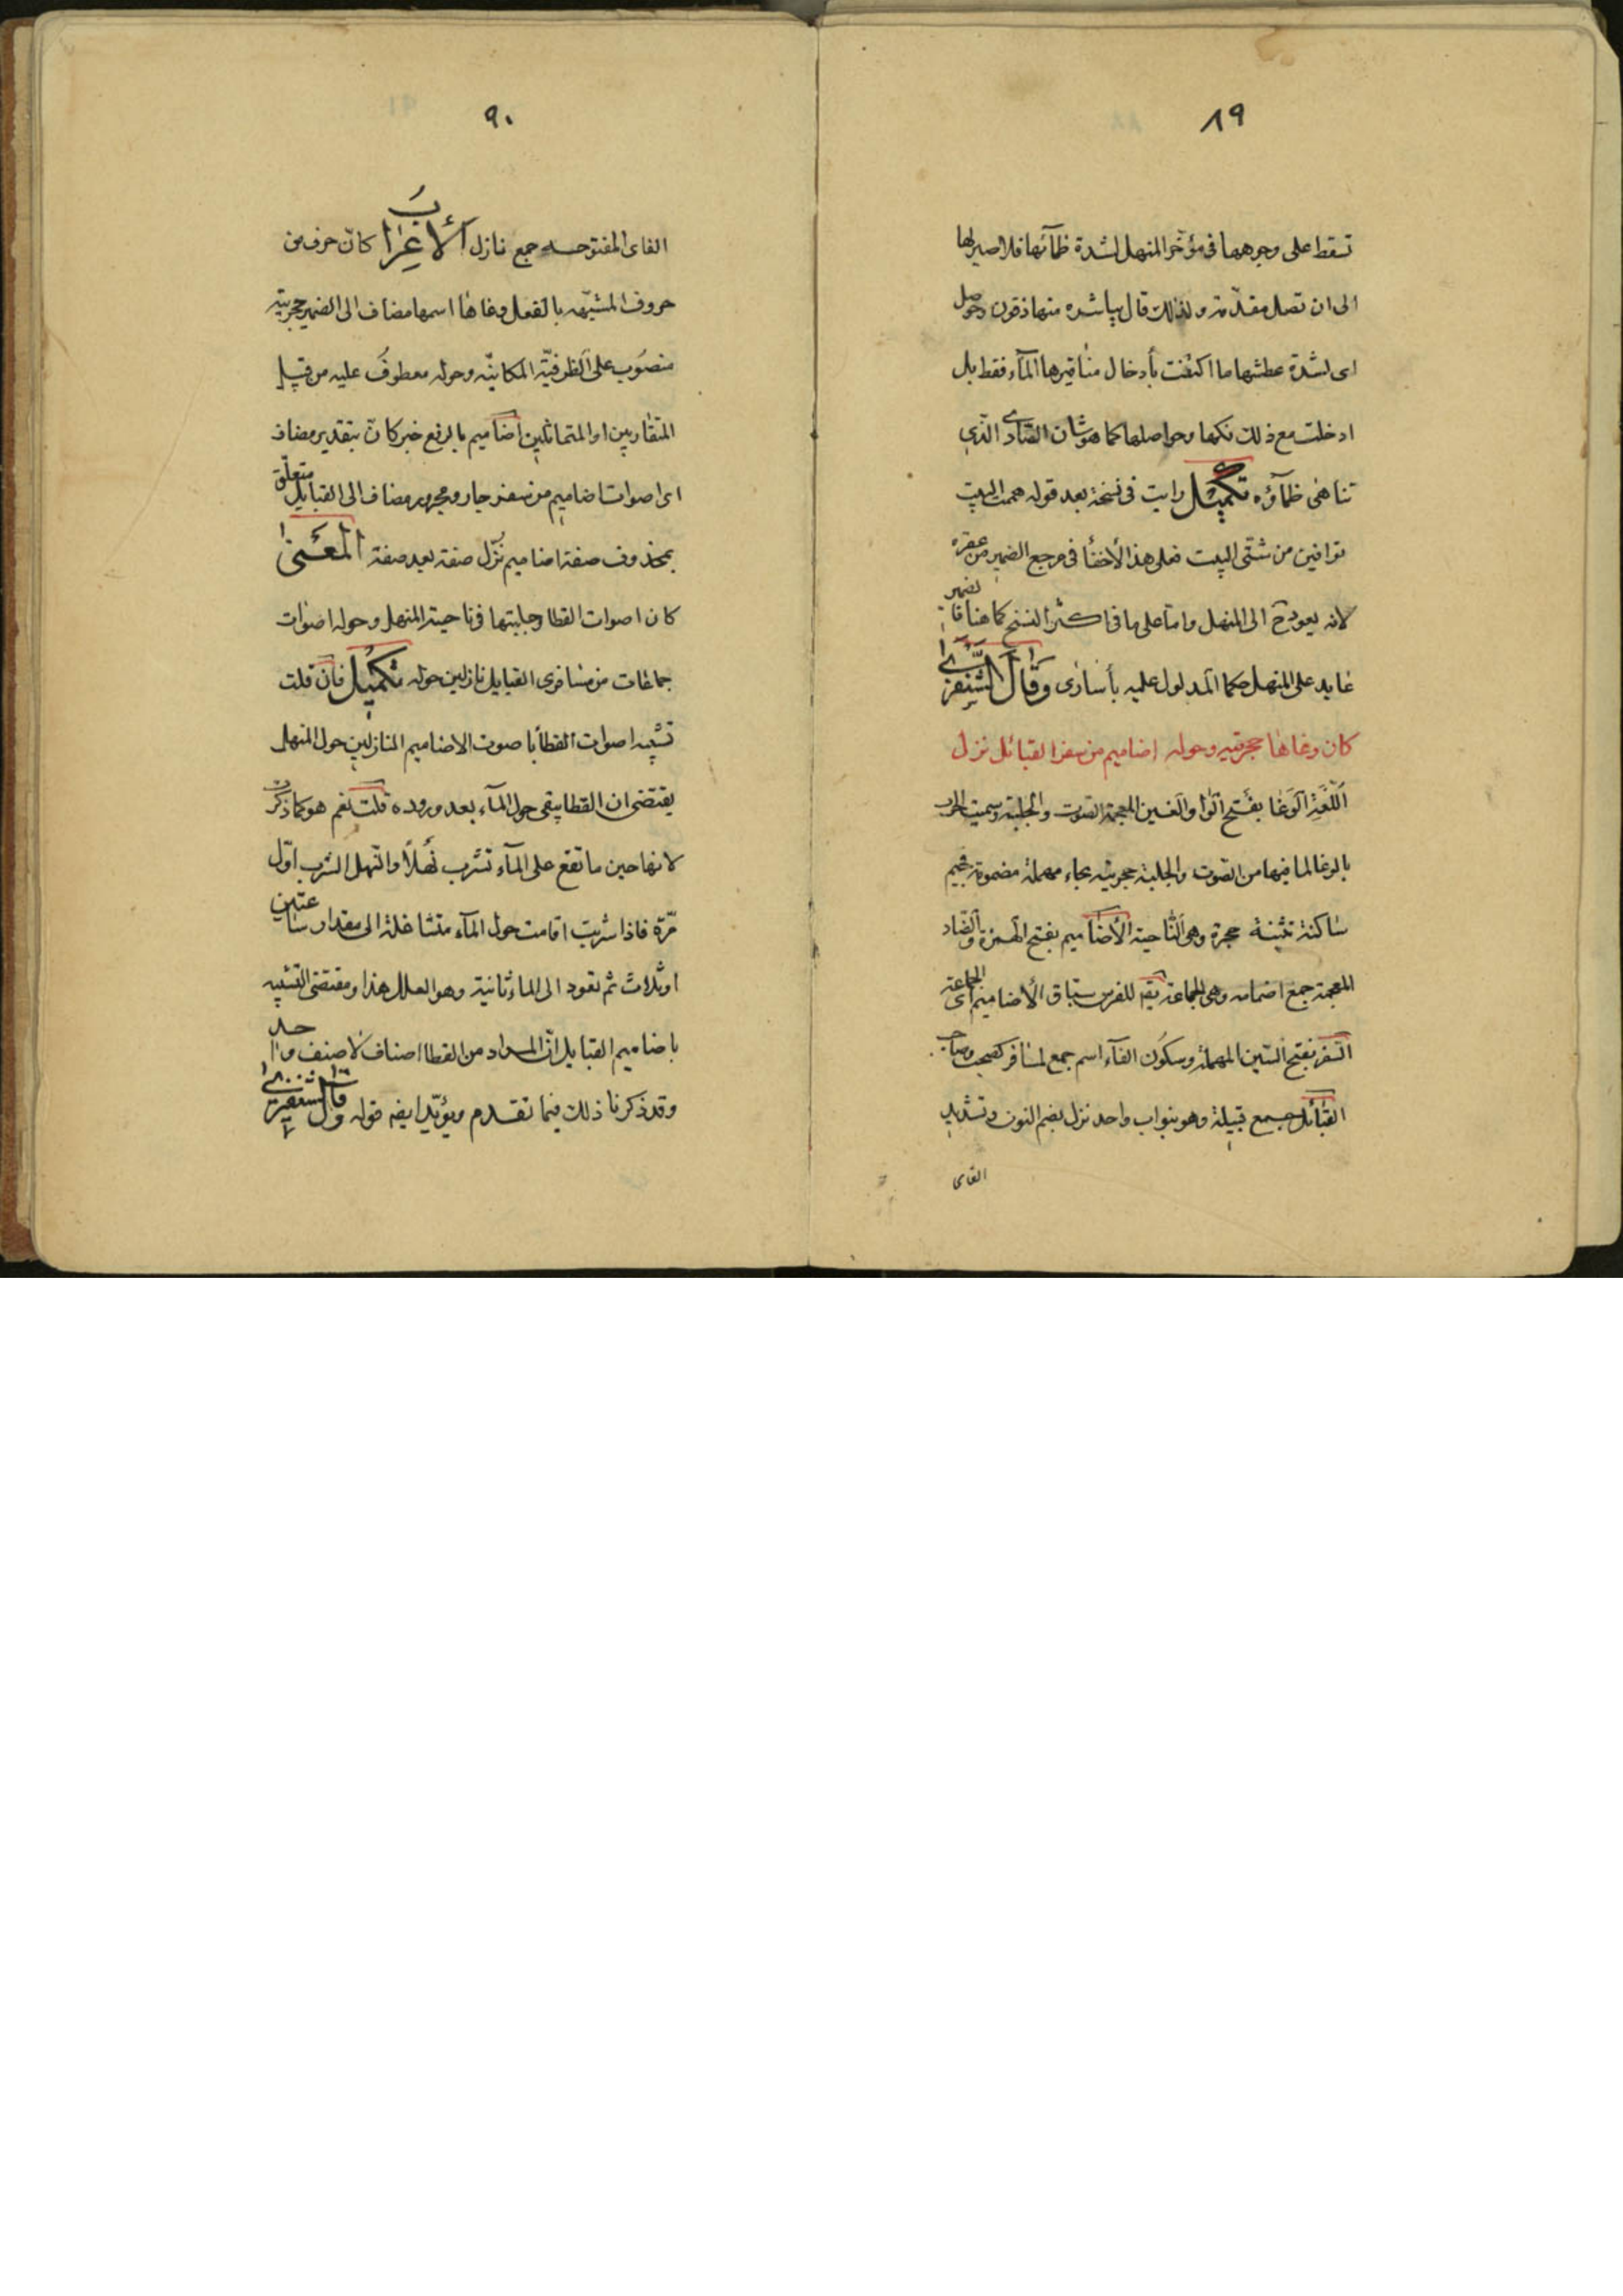 ٨٩
تسقط على وجوهها فى مؤخر المنهل لشدة ظمآئها فلا صبر لها
الى ان تصل مقدّمه ولذلك قال يباشره منها ذقون وحوصل
اى لشدة عطشها ما اكتفت بأدخال مناقيرها المآء فقط بل
ادخلت مع ذلك نكها وحواصلها كما هو شان الصّادى الّذى
تناهى ظمآؤه تكميل رايت فى نسخة بعد قوله هممت البيت
توافين من شتّى البيت فعلى هذا لأخفأ فى مرجع الضمير من عقره
لانه يعود ح الى المنهل واما على ما فى اكثر النسخ كما هنا فا لضمير
عايد على المنهل حكما المدلول عليه بأسارى وقال الشّنفرى
كان وغاها حجرتيه وحوله اضاميم من سفر القبائل نزل
اللّغة الوغا بفتح الوا والغين المعجمة الصوت والجلبة وسميت الحرب
بالوغا لما فيها من الصوت والجلبة حجرتيه بحاء مهملة مضمومة فجيم
ساكنة تثنية حجرة وهى النّاحية الأضاميم بفتح الهمزة والضّاد
المعجمة جمع اضمامه وهى الجماعة يقم للفرس سبّاق الأضاميم اى الجماعة
السّفر بفتح السّين المهملة وسكون الفآء اسم جمع لمسافر كصحب وصاحب
القبائل جمع قبيلة وهو بنواب واحد نزل بضم النون وتشديد
الفاى
٩٠
الفاى المفتوحه جمع نازل الأعراب كانّ حرف من
حروف المشبّهه بالفعل وغاها اسمها مضاف الى الضمير حجرتيه
منصوب على الظرفيّة المكانيّه وحوله معطوف عليه من قبيل
المتقاربين او المتماثلين اضاميم بالرفع خبر كانّ بتقدير مضاف
اى اصوات اضاميم من سفر جار ومجرور مضاف الى القبايل متعلّق
بمحذوف صفة اضاميم نزّل صفة بعد صفة المعنى
كان اصوات القطا وجلبتها فى ناحية المنهل وحوله اصوات
جماعات من مسافرى القبايل نازلين حوله تكميل فان قلت
تشبيه اصوات القطا باصوت الاضاميم النازلين حول المنهل
يقتضى ان القطا يبقى حول المآء بعد وروده قلت نعم هو كما ذكرت
لانها حين ما تقع على المآء تشرب نهلاً والنّهل الشرب اوّل
مرّة فاذا شربت اقامت حول المآء متشاغلة الى مقدار ساعتين
او ثلاث ثم تعود الى الماء ثانية وهو العلل هذا ومقتضى التشبيه
باضاميم القبايل انّ المراد من القطا اصناف لا صنف واحد
وقد ذكرنا ذلك فيما تقدم ويؤيّد ايضه قوله وقال الشنفرى